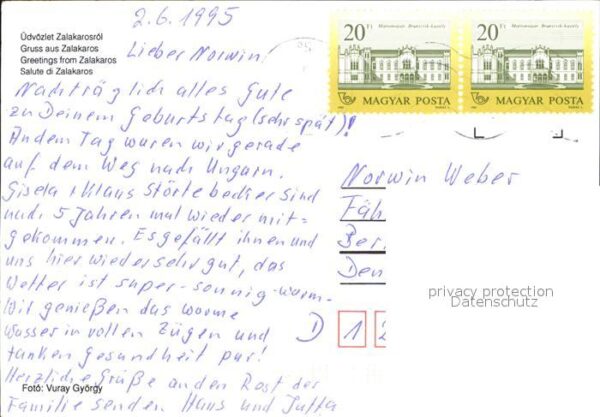 2.6.1995
Üdvözlet Zalakarosról
Gruss aus Zalakaros
Greetings from Zalakaros
Salute di Zalakaros
Lieber Norwin!
Nachträglich alles Gute
zu Deinem Geburtstag (sehr spät)!
An dem Tag waren wir gerade
auf dem Weg nach Ungarn.
Gisela + Klaus Störtebecker sind
nach 5 Jahren mal wieder mit=
gekommen. Es gefällt ihnen und
uns hier wieder sehr gut, das
Wetter ist super-sonnig-warm-
Wir genießen das warme
Wasser in vollen Zügen und
tanken Gesundheit pur!
Herzliche Grüße an den Rest der
Familie senden Hans und Jutta
Fotó: Vuray György
20 Ft
MAGYAR POSTA
20 Ft
MAGYAR POSTA
Norwin Weber
Fäh
Ber
Den
D 1 2
privacy protection
Datenschutz